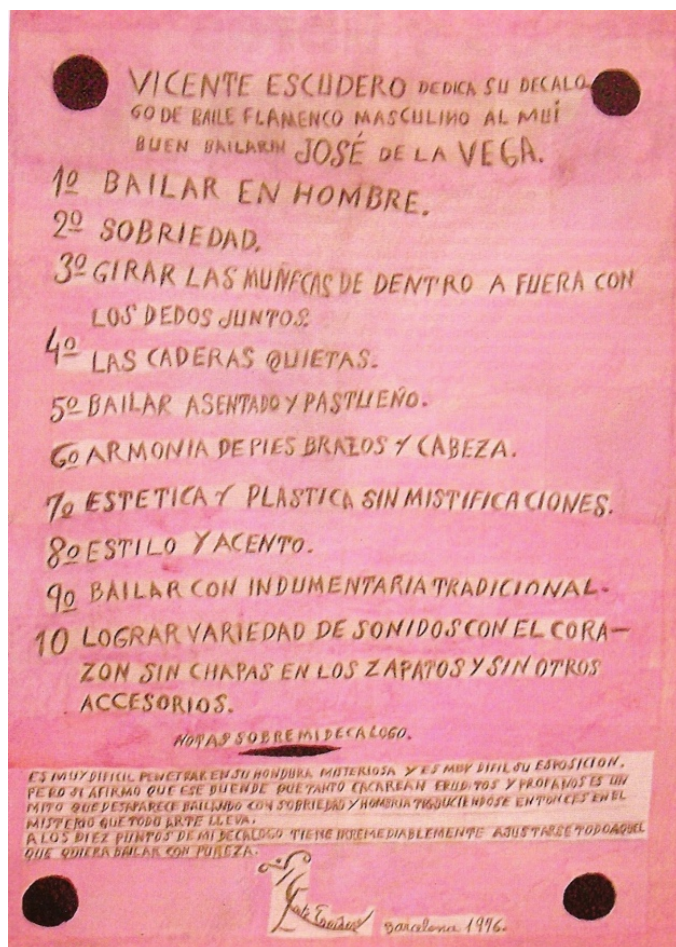 VICENTE ESCUDERO DEDICA SU DECALO
GO DE BAILE FLAMENCO MASCULINO AL MUÍ
BUEN BAILARIN JOSÉ DE LA VEGA.
1º BAILAR EN HOMBRE.
2º SOBRIEDAD.
3º GIRAR LAS MUÑECAS DE DENTRO A FUERA CON
LOS DEDOS JUNTOS.
4º LAS CADERAS QUIETAS.
5º BAILAR ASENTADO Y PASTUEÑO.
6º ARMONIA DE PIES BRAZOS Y CABEZA.
7º ESTETICA Y PLASTICA SIN MISTIFICACIONES.
8º ESTILO Y ACENTO.
9º BAILAR CON INDUMENTARIA TRADICIONAL.
10 LOGRAR VARIEDAD DE SONIDOS CON EL CORA-
ZON SIN CHAPAS EN LOS ZAPATOS Y SIN OTROS
ACCESORIOS.
NOTAS SOBRE MI DECALOGO.
ES MUY DIFICIL PENETRAR EN SU HONDURA MISTERIOSA Y ES MUY DIFIL SU ESPOSICION.
PERO SI AFIRMO QUE ESE DUENDE QUE TANTO CACAREAN ERUDITOS Y PROFANOS ES UN
MITO QUE DESAPARECE BAILANDO CON SOBRIEDAD Y HOMBRIA TRADUCIENDOSE ENTONCES EN EL
MISTERIO QUE TODO ARTE LLEVA.
A LOS DIEZ PUNTOS DE MI DECALOGO TIENE IRREMEDIABLEMENTE AJUSTARSE TODO AQUEL
QUE QUIERA BAILAR CON PUREZA.
Barcelona 1976.